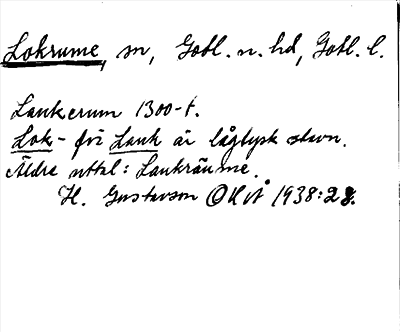 Lokrume, sn, Gotl. n. hd, Gotl. l.
Laukerum 1300-t.
Lok- för Lauk är lågtysk stavn.
Äldre uttal: Laukräume.
H. Gustavson OHVÅ 1938: 28.